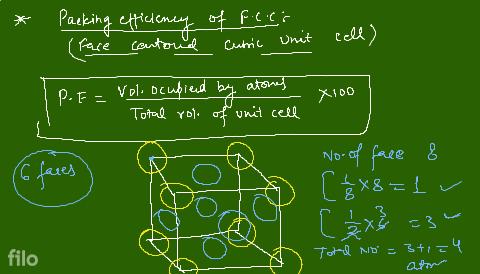 * Packing efficiency of F.C.C:-
(Face centered cubic unit cell)
P.E = Vol. occupied by atoms ×100
Total vol. of unit cell
6 faces
No. of face 8
[ 1/8 × 8 = 1 ✓
[ 1/2 × 6 3 = 3 ✓
Total No = 3+1 = 4
atom
filo